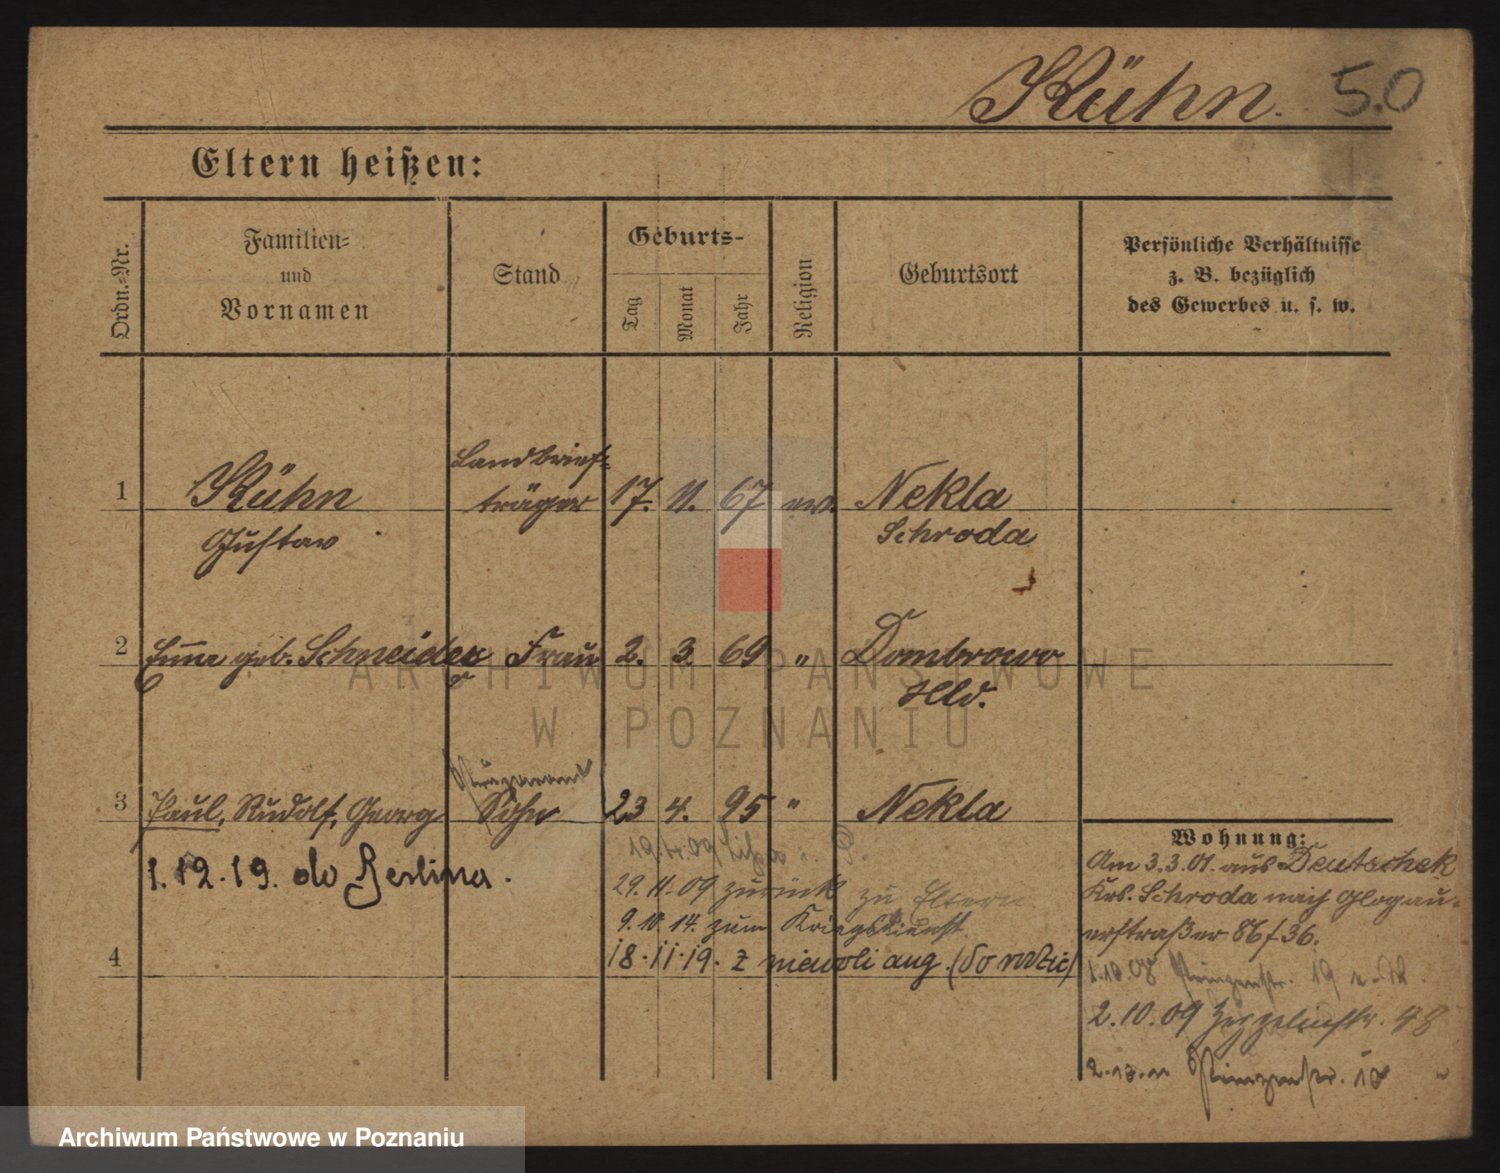 Kühn. 50
Eltern heißen:
Ordn.-Nr.
Familien-
und
Vornamen
Stand
Geburts-
Tag
Monat
Jahr
Religion
Geburtsort
Persönliche Verhältnisse
z. B. bezüglich
des Gewerbes u. s. w.
1 Kühn Landbrief-
träger 17. 11. 67 ev. Nekla
Gustav Schroda
2 Emma geb. Schneider Frau 2. 3. 69 " Dombrowo
Hld.
3 Paul, Rudolf, Georg Sohn 23 4. 95 " Nekla
1.12.19. do Berlina.
19.4.09
29.11.09 zurück zu Eltern
9.10.14. zum Kriegsdienst.
4 18.11.19. z niewoli ang. (do rodzic)
Wohnung:
Am 3.3.01. aus Deutschek
Krs. Schroda nach Glogau-
erstraße 86/36.
1.10.08 Prinzenstr. 19
2.10.09 Zeppelinstr. 48
Prinzenstr. 18
ARCHIWUM PAŃSTWOWE
W POZNANIU
Archiwum Państwowe w Poznaniu